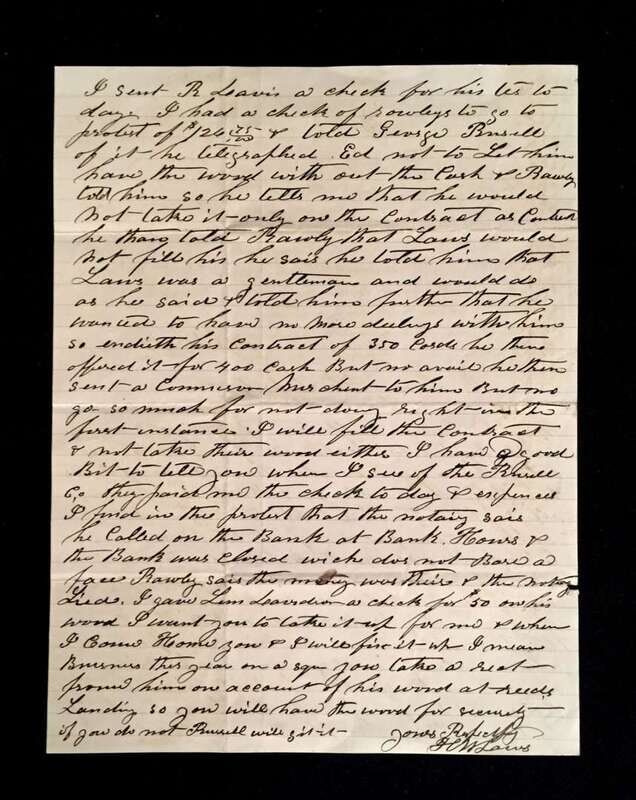 I sent R Leavis a check for his tes to
day I had a check of rowleys to go to
protest of $126 75/00 & told George Russell
of it he telegraphed Ed not to Let him
have the wood with out the Cash & Rawly
told him so he tells me that he would
Not take it only on the Contract as Contract
he than told Rawly that Laws would
Not fill his he sais he told him that
Laws was a gentleman and would do
as he said & told him further that he
wanted to have no more dealings with him
so endieth his Contract of 350 Cords he then
offered it for 400 Cash But no avail he then
sent a Commison Merchent to him But no
go so much for not doing right in the
first instance I will fill the Contract
& not take their wood either I have a good
Bit to tell you when I see of the Russell
Co they paid me the check to day & expences
I find in the protest that the notary sais
he Called on the Bank at Bank Hours &
the Bank was Closed wich dos not Bare a
face Rawly sais the money was their & the Notary
Lied. I gave Lem a check for $50 on his
wood I want you to take it up for me & when
I Come Home you & I will fix it up I mean
Buisness this year on a squ you take a rect
from him on account of his wood at reeds
Landing so you will have the wood for security
if you do not Russell will git it
yours Respectfly
Laws